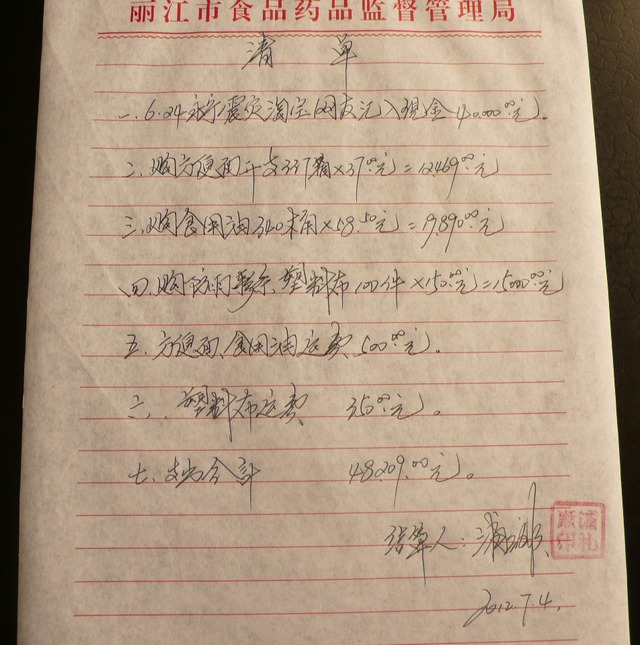 丽江市食品药品监督管理局
清单
一、6.24永宁震灾淘宝网友汇入现金40000.00元。
二、购方便面开支337箱×37.00元=12469.00元
三、购食用油340桶×58.50元=19890.00元
四、购防雨彩条塑料布100件×150.00元=15000.00元
五、方便面、食用油运费500.00元。
六、塑料布运费 350.00元。
七、支出合计 48209.00元。
结算人：浦
2012.7.4.